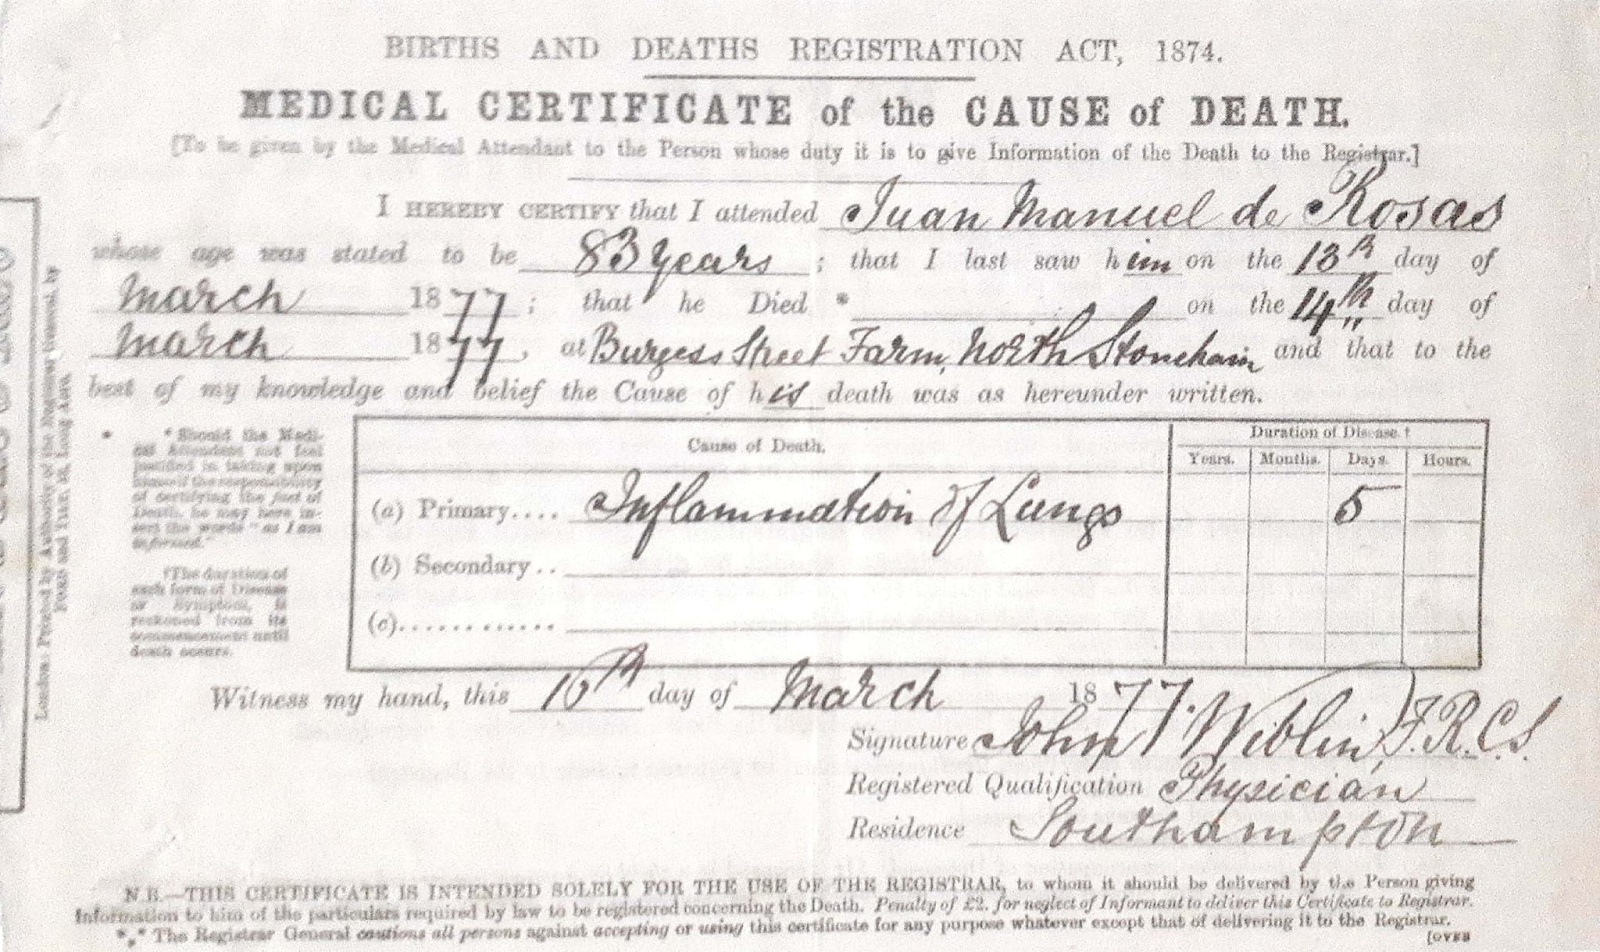 BIRTHS AND DEATHS REGISTRATION ACT, 1874.
MEDICAL CERTIFICATE of the CAUSE of DEATH.
[To be given by the Medical Attendant to the Person whose duty it is to give Information of the Death to the Registrar.]
I HEREBY CERTIFY that I attended Juan Manuel de Rosas
whose age was stated to be 83 years ; that I last saw him on the 13th day of
March 1877 ; that he Died * on the 14th day of
March 1877, at Burgess Street Farm, North Stoneham and that to the
best of my knowledge and belief the Cause of his death was as hereunder written.
* Should the Medi-
cal Attendant not feel
justified in taking upon
himself the responsibility
of certifying the fact of
Death, he may here in-
sert the words "as I am
informed."
†The duration of
each form of Disease
or Symptom, is
reckoned from its
commencement until
death occurs.
Cause of Death.
Duration of Disease.†
Years. Months. Days. Hours.
(a) Primary.... Inflammation of Lungs 5
(b) Secondary..
(c)............
Witness my hand, this 16th day of March 1877.
Signature John Wiblin, F.R.C.S.
Registered Qualification Physician
Residence Southampton
N.B.—THIS CERTIFICATE IS INTENDED SOLELY FOR THE USE OF THE REGISTRAR, to whom it should be delivered by the Person giving
Information to him of the particulars required by law to be registered concerning the Death. Penalty of £2. for neglect of Informant to deliver this Certificate to Registrar.
*,* The Registrar General cautions all persons against accepting or using this certificate for any purpose whatever except that of delivering it to the Registrar.
[OVER
London: Printed by Authority of the Registrar General, by